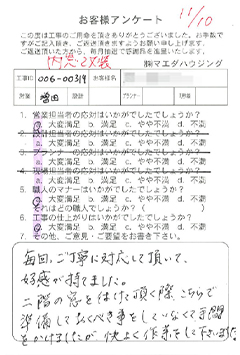 お客様アンケート
11/10
この度は工事のご用命を頂きありがとうございました。お手数で
すがご記入頂き、ご返送頂きますようお願い申し上げます。
ご返送頂いた方から、毎月抽選で
内窓2ヶ所
㈱マエダハウジング
工事ID 006-00314 お客様名
営業 増田 設計 プランナー 工事
1. 営業担当者の応対はいかがでしたでしょうか?
a. 大変満足 b. 満足 c. やや不満 d. 不満
2. 設計担当者の応対はいかがでしたでしょうか?
a. 大変満足 b. 満足 c. やや不満 d. 不満
3. プランナーの応対はいかがでしたでしょうか?
a. 大変満足 b. 満足 c. やや不満 d. 不満
4. 現場担当者の応対はいかがでしたでしょうか?
a. 大変満足 b. 満足 c. やや不満 d. 不満
5. 職人のマナーはいかがでしたでしょうか?
a. 大変満足 b. 満足 c. やや不満 d. 不満
それはどの職人でしょうか?(
6. 工事の仕上がりはいかがでしたでしょうか?
a. 大変満足 b. 満足 c. やや不満 d. 不満
7. その他、ご意見・ご要望をお書き下さい。
毎回、ご丁寧に対応して頂いて、
好感が持てました。
二階の窓を付けて頂く際、こちらで
準備しておくべき事をしていなくて手間
をかけましたが 快よく作業をして下さいました